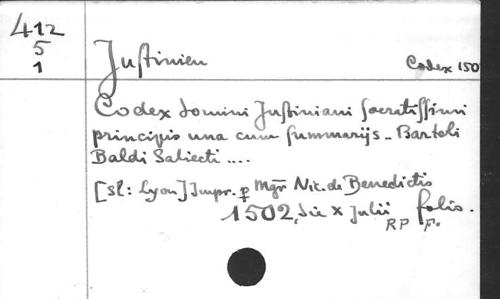 412
5
1
Justinien Codex 150
Codex domini Justiniani sacratissimi
principis una cum summarijs .. Bartoli
Baldi Saliceti ....
[sl: Lyon] Impr. p Mgr̃ Nic. de Benedictis
1502, die X Julii folio.
RP F.